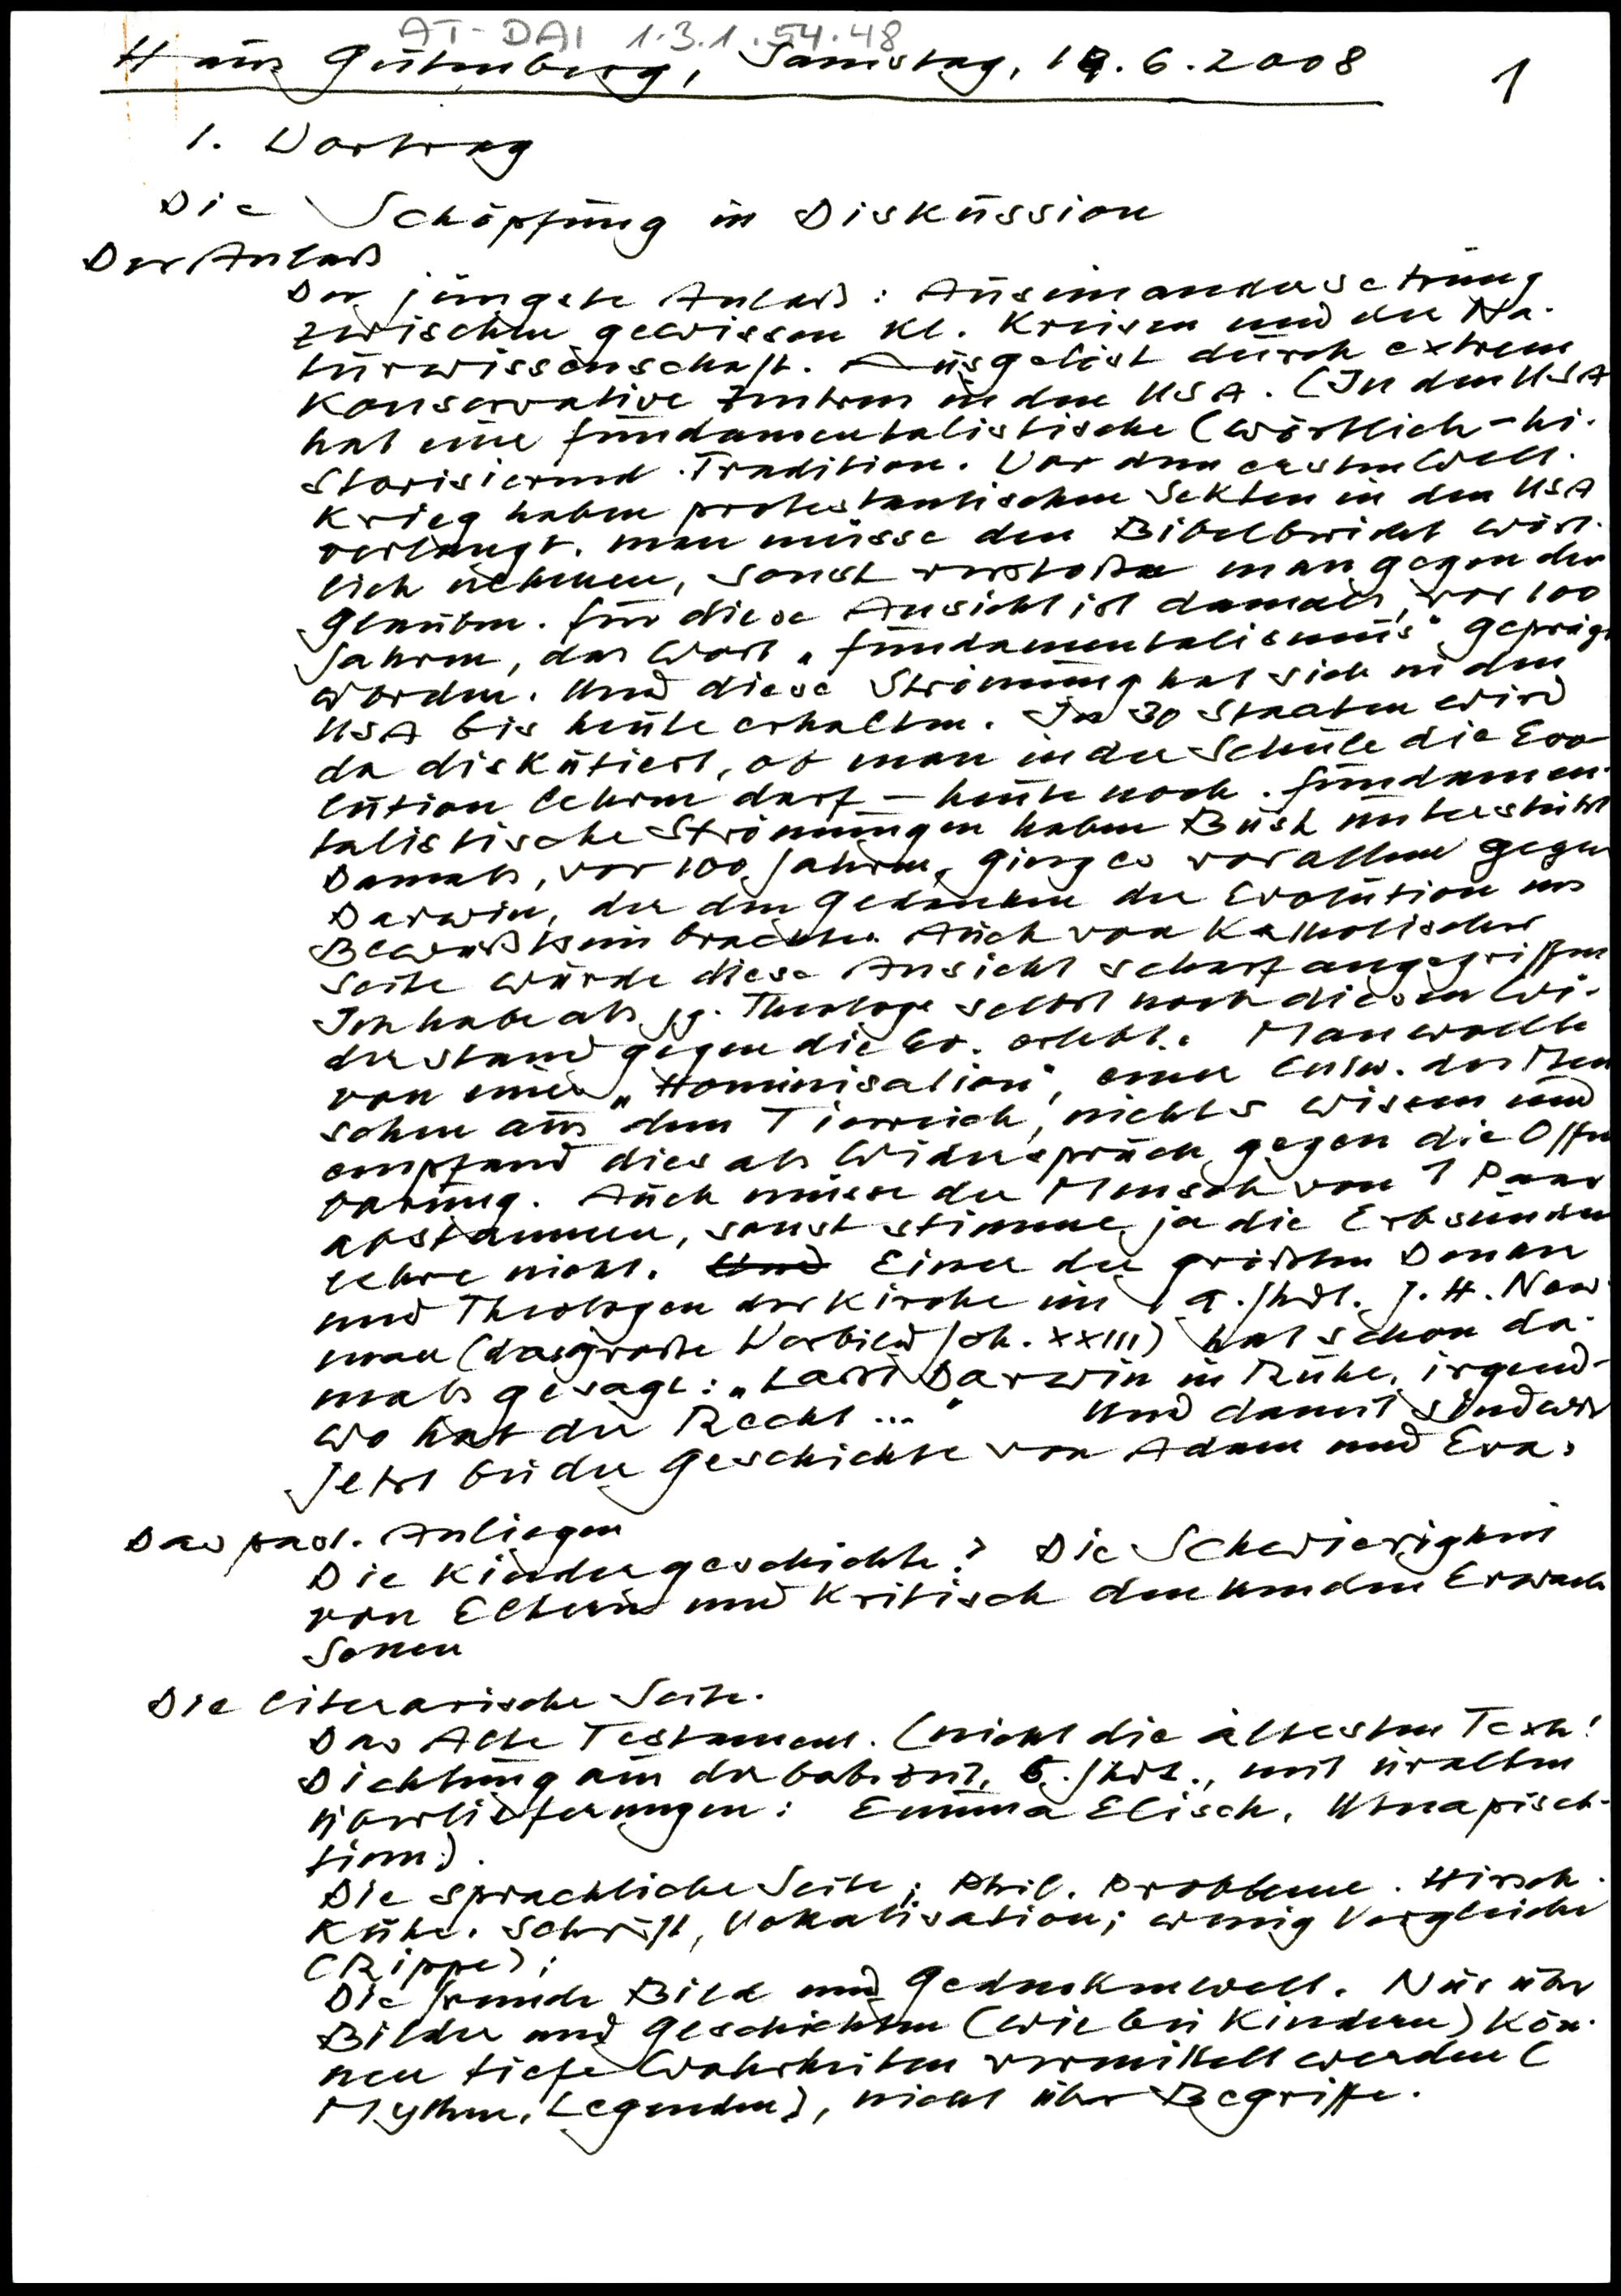 AT-DAI 1.3.1.54.48
Haus Gutenberg, Samstag, 1.6.2008
1
1. Vortrag
Die Schöpfung in Diskussion
Der Anlaß
Der jüngste Anlaß: Auseinandersetzung
zwischen gewissen kl. Kreisen und der Na-
turwissenschaft. Ausgelöst durch extrem
konservative Zentren in den USA. (In den USA
hat eine fundamentalistische (wörtlich-hi-
storisierend Tradition. Vor dem ersten Welt-
krieg haben protestantischen Sekten in den USA
verlangt, man müsse den Bibelbericht wört-
lich nehmen, sonst verstoße man gegen den
Glauben. für diese Ansicht ist damals, vor 100
Jahren, das Wort "fundamentalismus" geprägt
worden. Und diese Strömung hat sich in den
USA bis heute erhalten. In 30 Staaten wird
da diskutiert, ob man in der Schule die Evo
lution lehren darf - heute noch. fundamen-
talistische Strömungen haben Bush unterstützt
Damals, vor 100 Jahren, ging es vor allem gegen
Darwin, der den Gedanken der Evolution ins
Bewußtsein brachte. Auch von Katholischer
Seite wurde diese Ansicht scharf angegriffen
Ich habe als jg. Theologe selbst noch diesen Wi-
derstand gegen die Ev. erlebt. Man wollte
von einer "Hominisation", einer Entw. des Men
schen aus dem Tierreich, nichts wissen und
empfand dies als Widerspruch gegen die Offen
barung. Auch müsse der Mensch von 1 Paar
abstammen, sonst stimme ja die Erbsünden
lehre nicht. Und Einer der größten Denker
und Theologen der Kirche im 19. Jhdt. J. H. New
man (das große Vorbild Joh. XXIII) hat schon da-
mals gesagt: "Laßt Darwin in Ruhe, irgend-
wo hat der Recht ..." Und damit sind wir
jetzt bei der Geschichte von Adam und Eva.
Das past. Anliegen
Die Kindergeschichte? Die Schwierigkeit
von Eltern und kritisch denkenden Erwach
senen
Die literarische Seite.
Das Alte Testament. (nicht die ältesten Texte!
Dichtung aus der bab. Zeit, 6. Jhdt., mit uralten
Überlieferungen: Enuma Elisch, Utnapisch-
tim).
Die sprachliche Seite; Phil. Probleme. Hirsch-
kuh. Schrift, Vokalisation; wenig Vergleiche
(Rippe);
Die fremde Bild und Gedankenwelt. Nur über
Bilder und Geschichten (wie bei Kindern) kön-
nen tiefe Wahrheiten vermittelt werden (
Mythen, Legenden), nicht über Begriffe.